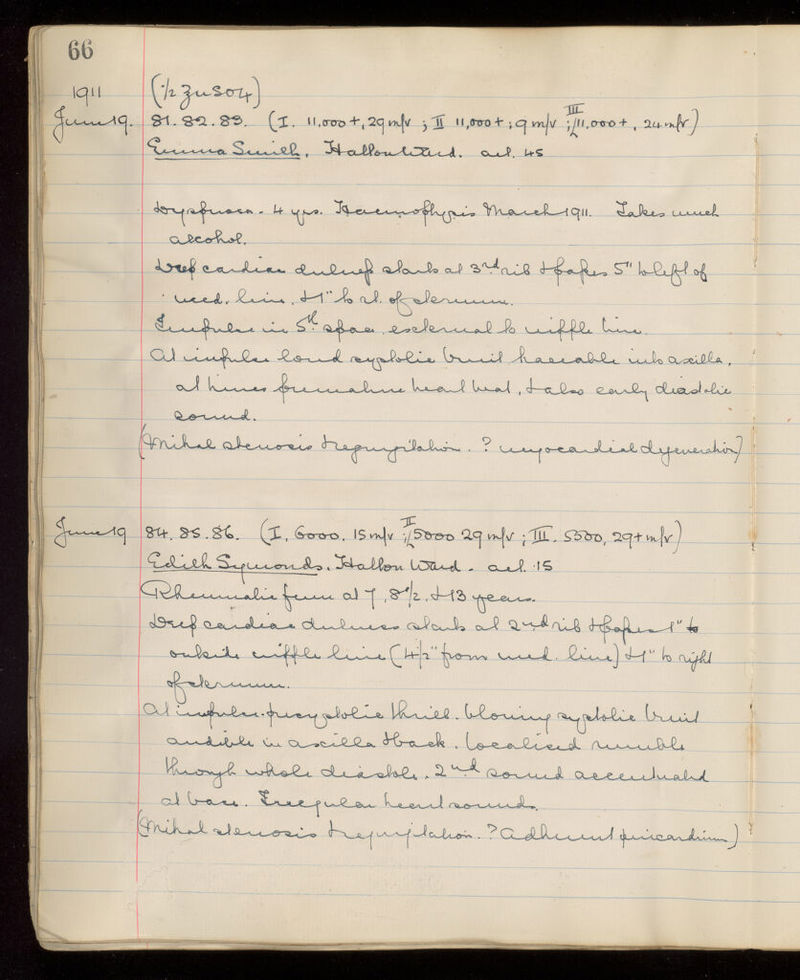 66
1911
(1/2 ZnSO4)
June 19. 81. 82. 83. (I. 11,000+, 29 m/v ; II 11,000+ ; 9 m/v ; III 11,000+, 24 m/v)
Emma Smith, Hallon Ward. aet. 45
Dyspnoea - 4 yrs. Haemophysis March 1911. Takes much
alcohol.
Deep cardiac dulness starts at 3rd rib & passes 5" to left of
med. line. & 1" to rt. of sternum.
Impulse in 5th space, external to nipple line.
At impulse loud systolic bruit traceable into axilla,
at times premature heart beat, & also early diastolic
sound.
(Mitral stenosis & regurgitation. ? myocardial degeneration)
June 19 84. 85. 86. (I, 6000. 15 m/v ; II 5000 29 m/v ; III. 5500, 29+ m/v)
Edith Symonds. Hallon Ward - aet. 15
Rheumatic fever at 7, 8 1/2, & 13 years.
Deep cardiac dulness starts at 2nd rib & passes 1" to
outside nipple line (4 1/2" from med. line) & 1" to right
of sternum.
At impulse. presystolic thrill. blowing systolic bruit
audible in axilla & back. Localised rumble
through whole diastole. 2nd sound accentuated
at base. Irregular heart sounds.
(Mitral stenosis & regurgitation. ? Adherent pericardium)